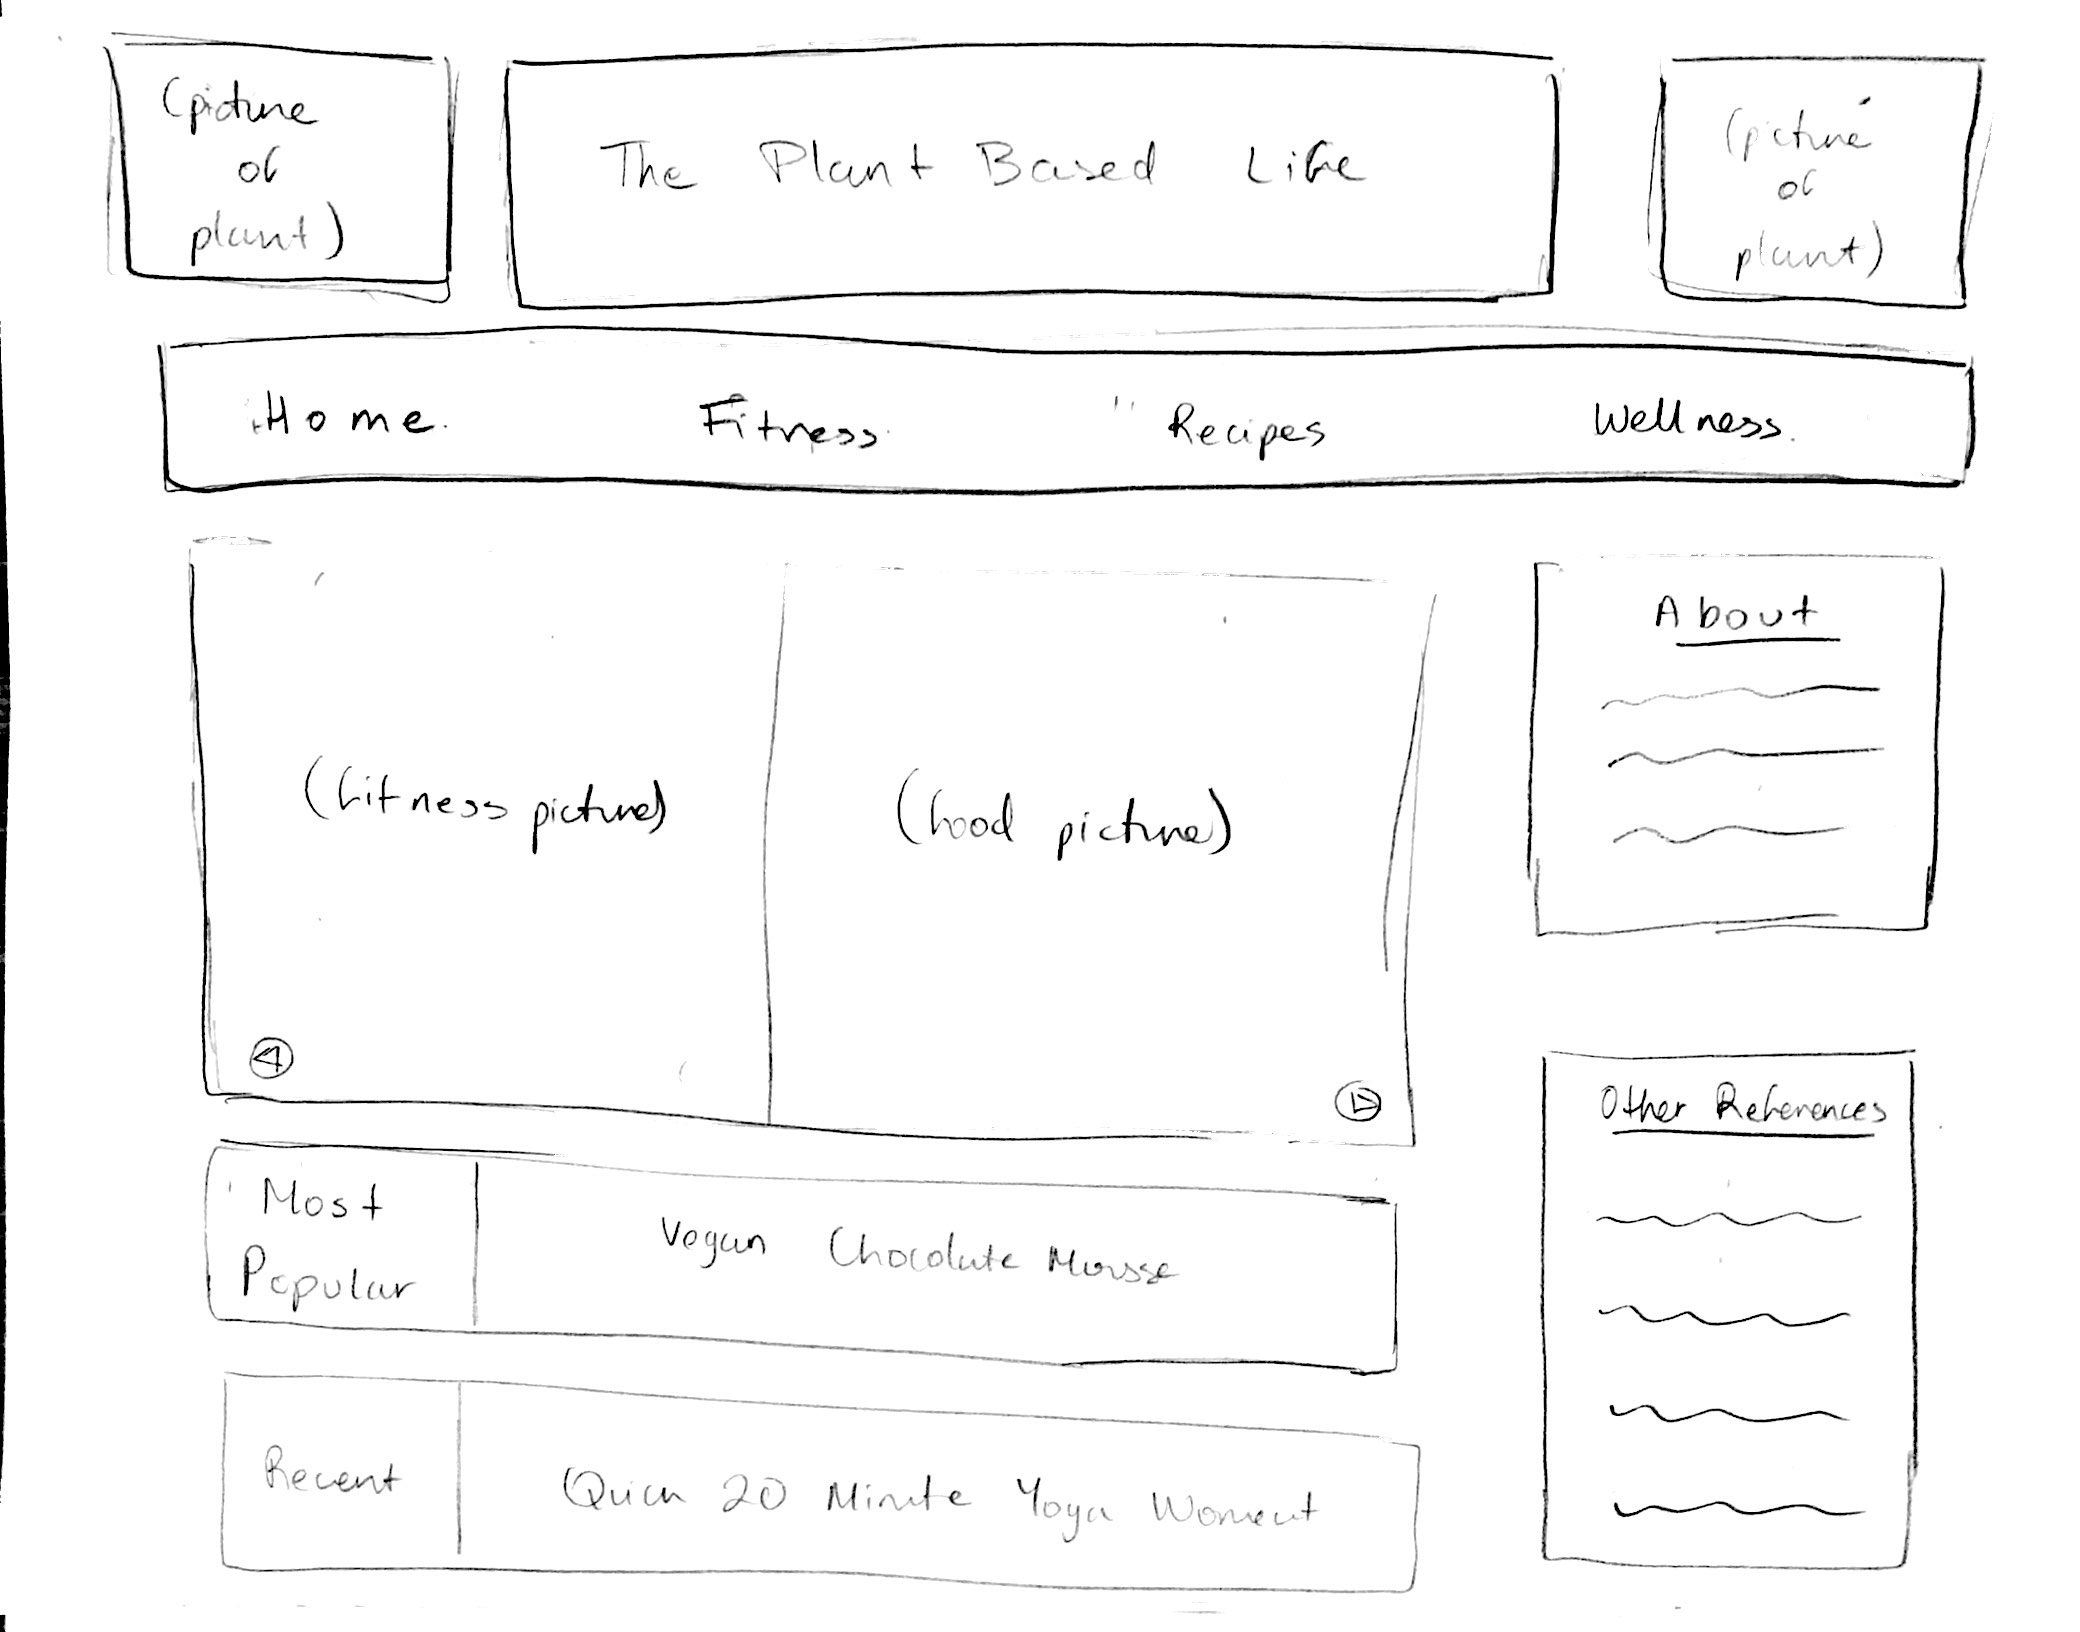 (picture
of
plant)
The Plant Based Life
(picture
of
plant)
Home Fitness Recipes Wellness
(fitness picture)
(food picture)
About
Most
Popular
Vegan Chocolate Mousse
Recent
Quick 20 Minute Yoga Workout
Other References